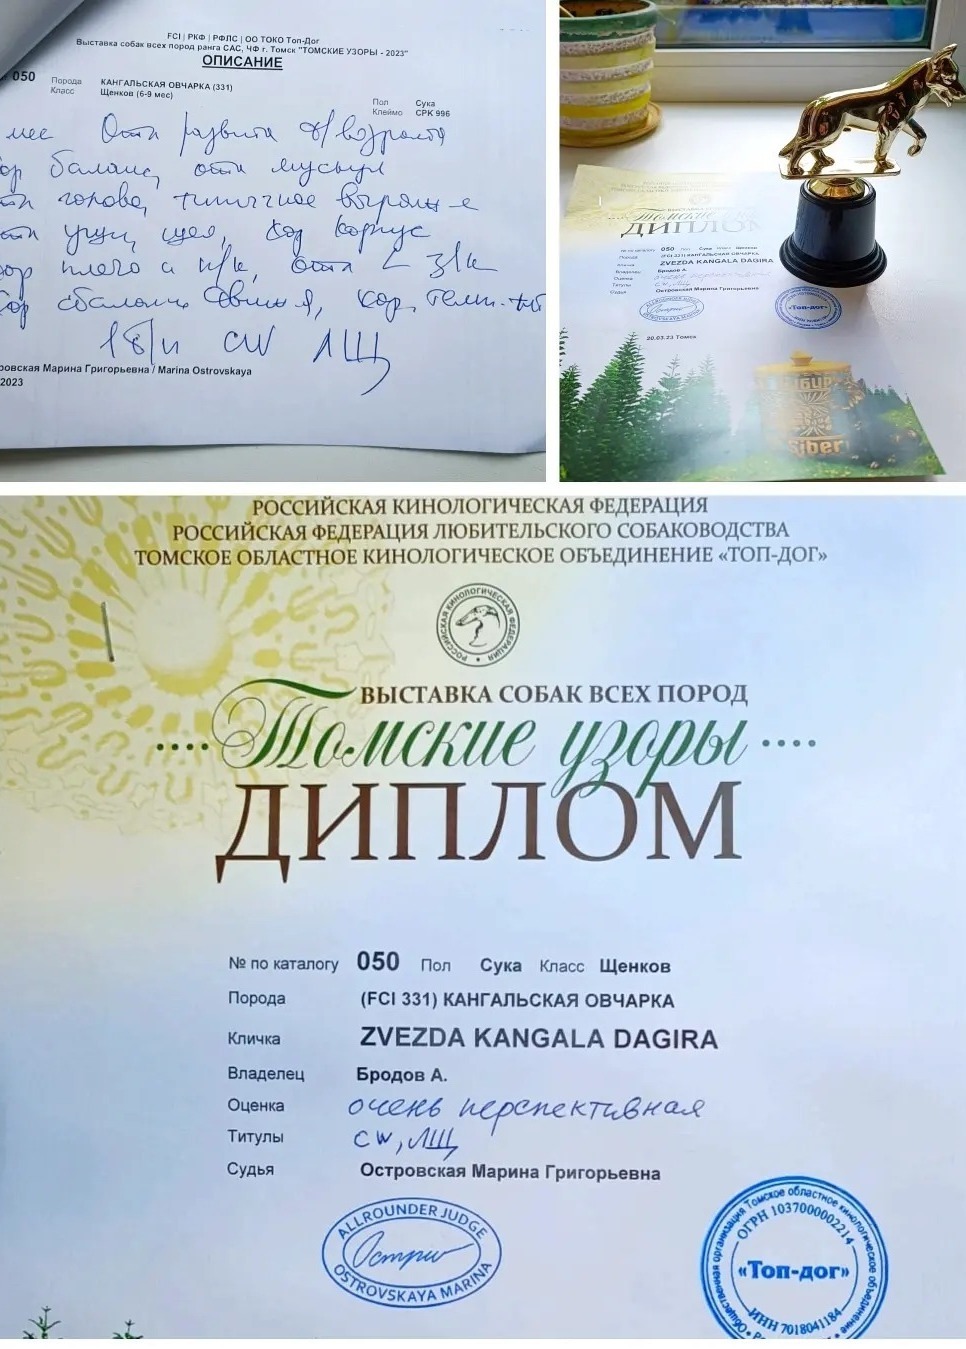 FCI | РКФ | РФЛС | ОО ТОКО Топ-Дог
Выставка собак всех пород ранга САС, ЧФ г. Томск "ТОМСКИЕ УЗОРЫ - 2023"
ОПИСАНИЕ
050 Порода КАНГАЛЬСКАЯ ОВЧАРКА (331)
Класс Щенков (6-9 мес)
Пол Сука
Клеймо CPK 996
мес Отл развита д/возраста
баланс, отл мускул
голова, типичное выраж-е
уши, шея, хор корпус
плечо и п/к, отл L з/к
хор сбаланс хор темп-нт
CW ЛЩ
Марина Григорьевна / Marina Ostrovskaya
2023
Томские
ДИПЛОМ
№ по каталогу 050 Пол Сука Класс Щенков
Порода (FCI 331) КАНГАЛЬСКАЯ ОВЧАРКА
Кличка ZVEZDA KANGALA DAGIRA
Владелец Бродов А.
Оценка очень перспективная
Титулы CW, ЛЩ
Судья Островская Марина Григорьевна
ALLROUNDER JUDGE
OSTROVSKAYA MARINA
«Топ-дог»
20.03.23 Томск
Siber
РОССИЙСКАЯ КИНОЛОГИЧЕСКАЯ ФЕДЕРАЦИЯ
РОССИЙСКАЯ ФЕДЕРАЦИЯ ЛЮБИТЕЛЬСКОГО СОБАКОВОДСТВА
ТОМСКОЕ ОБЛАСТНОЕ КИНОЛОГИЧЕСКОЕ ОБЪЕДИНЕНИЕ «ТОП-ДОГ»
РОССИЙСКАЯ КИНОЛОГИЧЕСКАЯ ФЕДЕРАЦИЯ
ВЫСТАВКА СОБАК ВСЕХ ПОРОД
Томские узоры
ДИПЛОМ
№ по каталогу 050 Пол Сука Класс Щенков
Порода (FCI 331) КАНГАЛЬСКАЯ ОВЧАРКА
Кличка ZVEZDA KANGALA DAGIRA
Владелец Бродов А.
Оценка очень перспективная
Титулы CW, ЛЩ
Судья Островская Марина Григорьевна
ALLROUNDER JUDGE
OSTROVSKAYA MARINA
Общественная организация Томское областное кинологическое объединение
ОГРН 1037000002214
«Топ-дог»
ИНН 7018041184